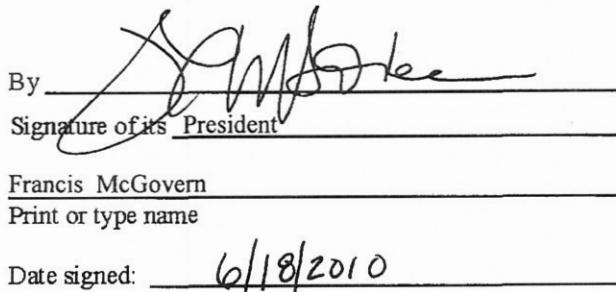 By
Signature of its President
Francis McGovern
Print or type name
Date signed: 6/18/2010